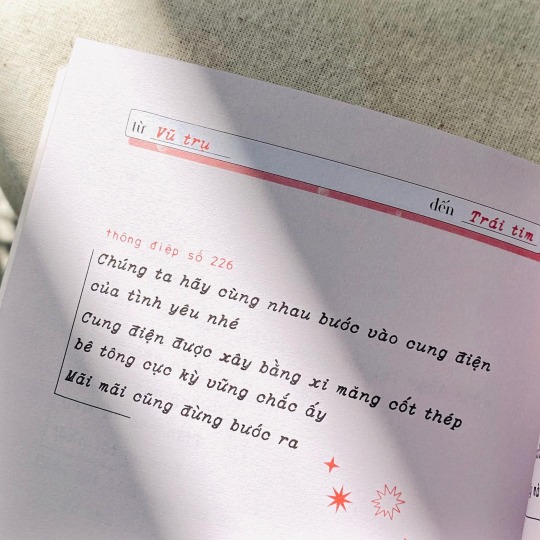 từ Vũ trụ
đến Trái tim
thông điệp số 226
Chúng ta hãy cùng nhau bước vào cung điện
của tình yêu nhé
Cung điện được xây bằng xi măng cốt thép
bê tông cực kỳ vững chắc ấy
Mãi mãi cũng đừng bước ra